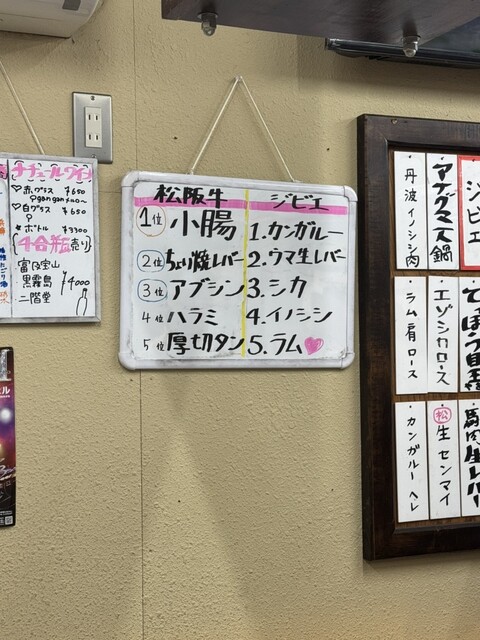 ナチュールワイン
♡赤グラス ¥650
♡白グラス ¥650
ボトル ¥3300
4合瓶売り
富乃宝山
黒霧島
二階堂
¥4000
松阪牛
1位 小腸
2位 ちょい焼レバー
3位 アブシン
4位 ハラミ
5位 厚切タン
ジビエ
1.カンガルー
2.ウマ生レバー
3.シカ
4.イノシシ
5.ラム♡
丹波イノシシ肉
アナグマ天鍋
ジビエ
ラム肩ロース
エゾシカロース
カンガルーヘレ
松 生センマイ
馬肉生レバー